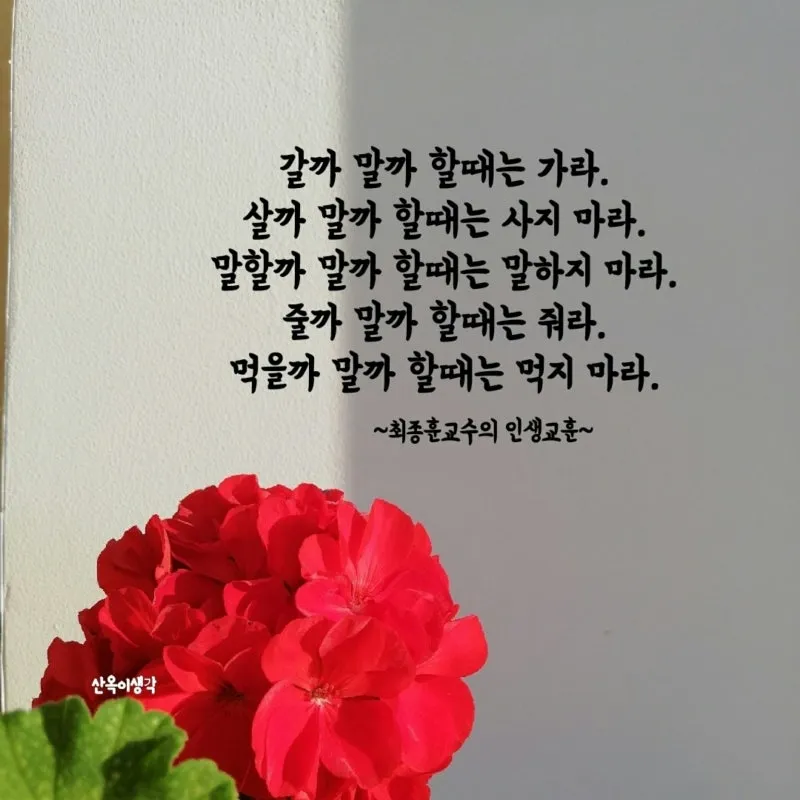 갈까 말까 할때는 가라.
살까 말까 할때는 사지 마라.
말할까 말까 할때는 말하지 마라.
줄까 말까 할때는 줘라.
먹을까 말까 할때는 먹지 마라.
~최종훈교수의 인생교훈~
산옥이생각